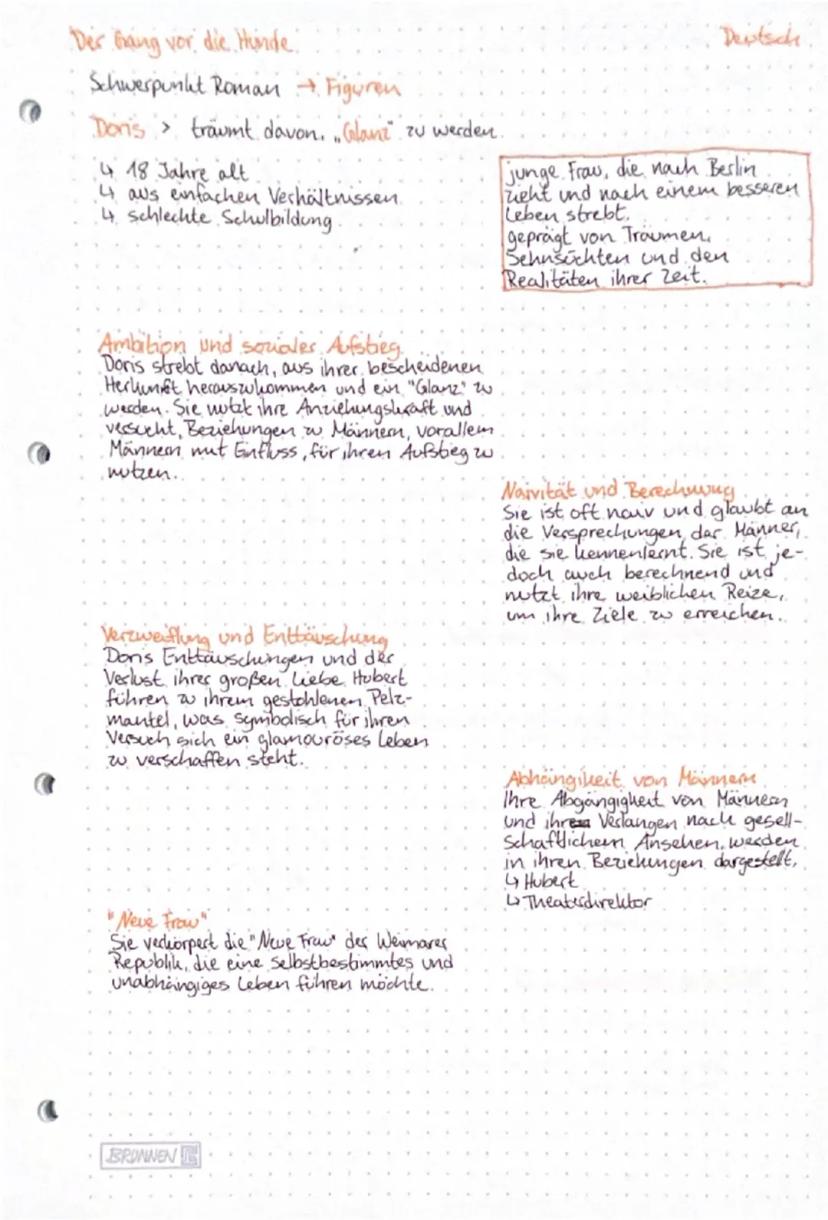 Der Gang vor die Hunde
Deutsch
Schwerpunkt Roman → Figuren
Doris > träumt davon, „Glanz" zu werden.
↳ 18 Jahre alt
↳ aus einfachen Verhältnissen
↳ schlechte Schulbildung
junge Frau, die nach Berlin
zieht und nach einem besseren
Leben strebt.
geprägt von Träumen,
Sehnsüchten und den
Realitäten ihrer Zeit.
Ambition und sozialer Aufstieg
Doris strebt danach, aus ihrer bescheidenen
Herkunft herauszukommen und ein "Glanz" zu
werden. Sie nutzt ihre Anziehungskraft und
versucht, Beziehungen zu Männern, vorallem
Männern mit Einfluss, für ihren Aufstieg zu
nutzen.
Naivität und Berechnung
Sie ist oft naiv und glaubt an
die Versprechungen der Männer,
die sie kennenlernt. Sie ist je-
doch auch berechnend und
nutzt ihre weiblichen Reize,
um ihre Ziele zu erreichen.
Verzweiflung und Enttäuschung
Doris Enttäuschungen und der
Verlust ihrer großen Liebe Hubert
führen zu ihrem gestohlenen Pelz-
mantel, was symbolisch für ihren
Versuch sich ein glamouröses Leben
zu verschaffen steht.
Abhängikeit von Männern
Ihre Abgängigkeit von Männern
und ihr Verlangen nach gesell-
schaftlichem Ansehen, werden
in ihren Beziehungen dargestellt.
↳ Hubert
↳ Theaterdirektor
"Neue Frau"
Sie verkörpert die "Neue Frau" der Weimarer
Republik, die eine selbstbestimmtes und
unabhängiges Leben führen möchte.
BRUNNEN